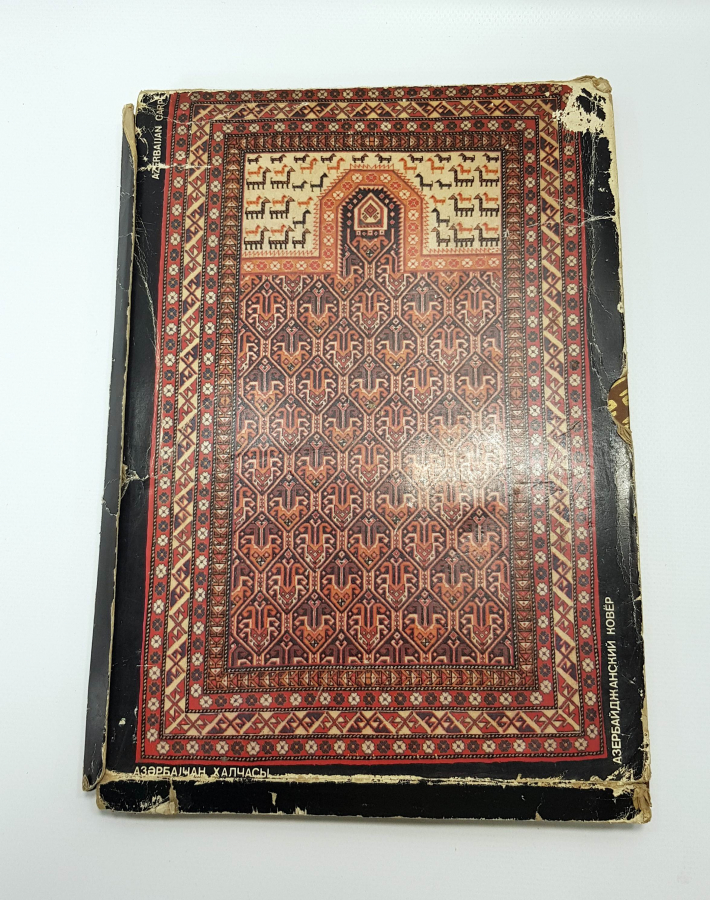 AZERBAIJAN CARPET
АЗӘРБАЈҸАН ХАЛЧАСЫ
АЗЕРБАЙДЖАНСКИЙ КОВЁР